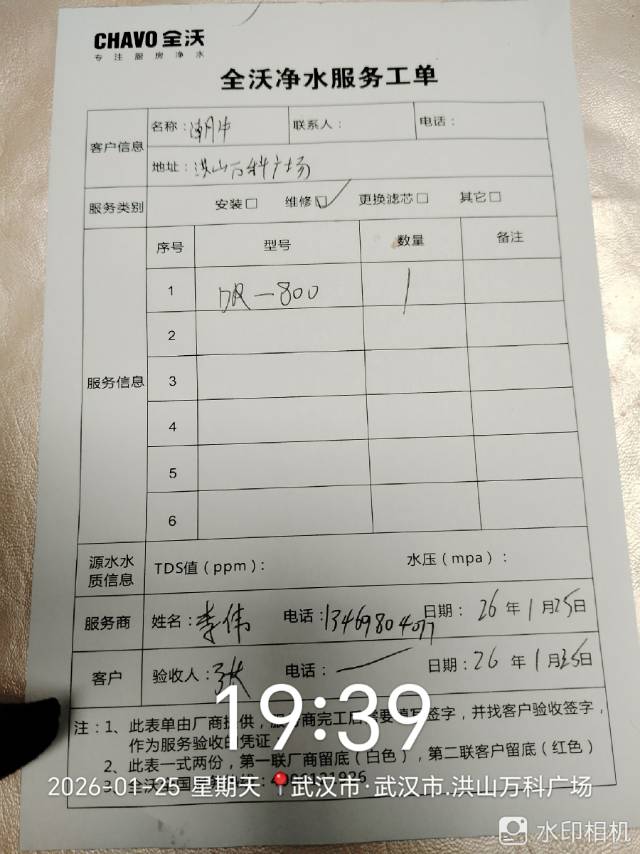 CHAVO 全沃
专注厨房净水
全沃净水服务工单
客户信息
名称：潮牛
联系人：
电话：
地址：洪山万科广场
服务类别
安装□ 维修☑ 更换滤芯□ 其它□
服务信息
序号 型号 数量 备注
1 -800 1
2
3
4
5
6
源水水质信息
TDS值（ppm）： 水压（mpa）：
服务商 姓名：李伟 电话： 日期：26年1月25日
客户 验收人：张 电话：— 日期：26年1月25日
注：1、此表单由厂商提供，服务商完工后需要填写签字，并找客户验收签字，
作为服务验收的凭证
2、此表一式两份，第一联厂商留底（白色），第二联客户留底（红色）
3、全沃全国
19:39
2026-01-25 星期天 武汉市·武汉市.洪山万科广场
水印相机